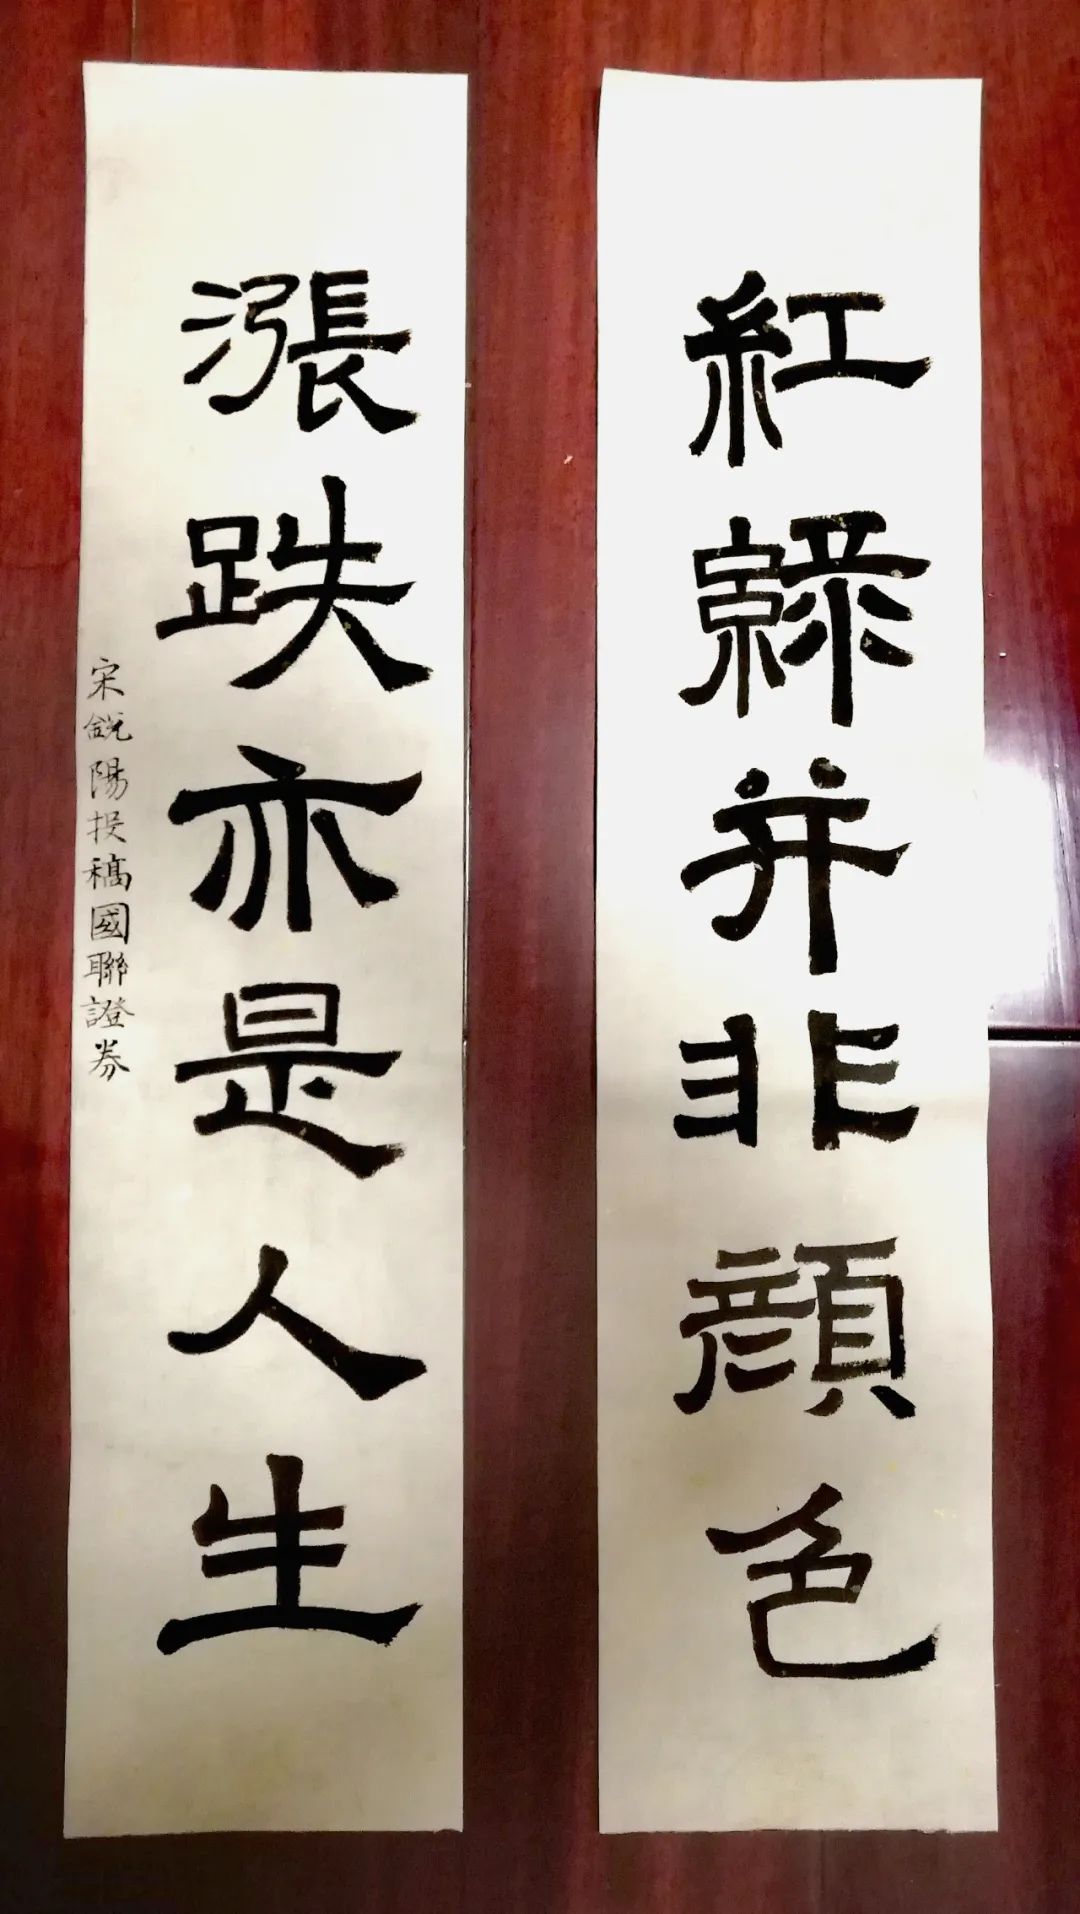 紅綠并非顔色
漲跌亦是人生
宋銳陽投稿國聯證券